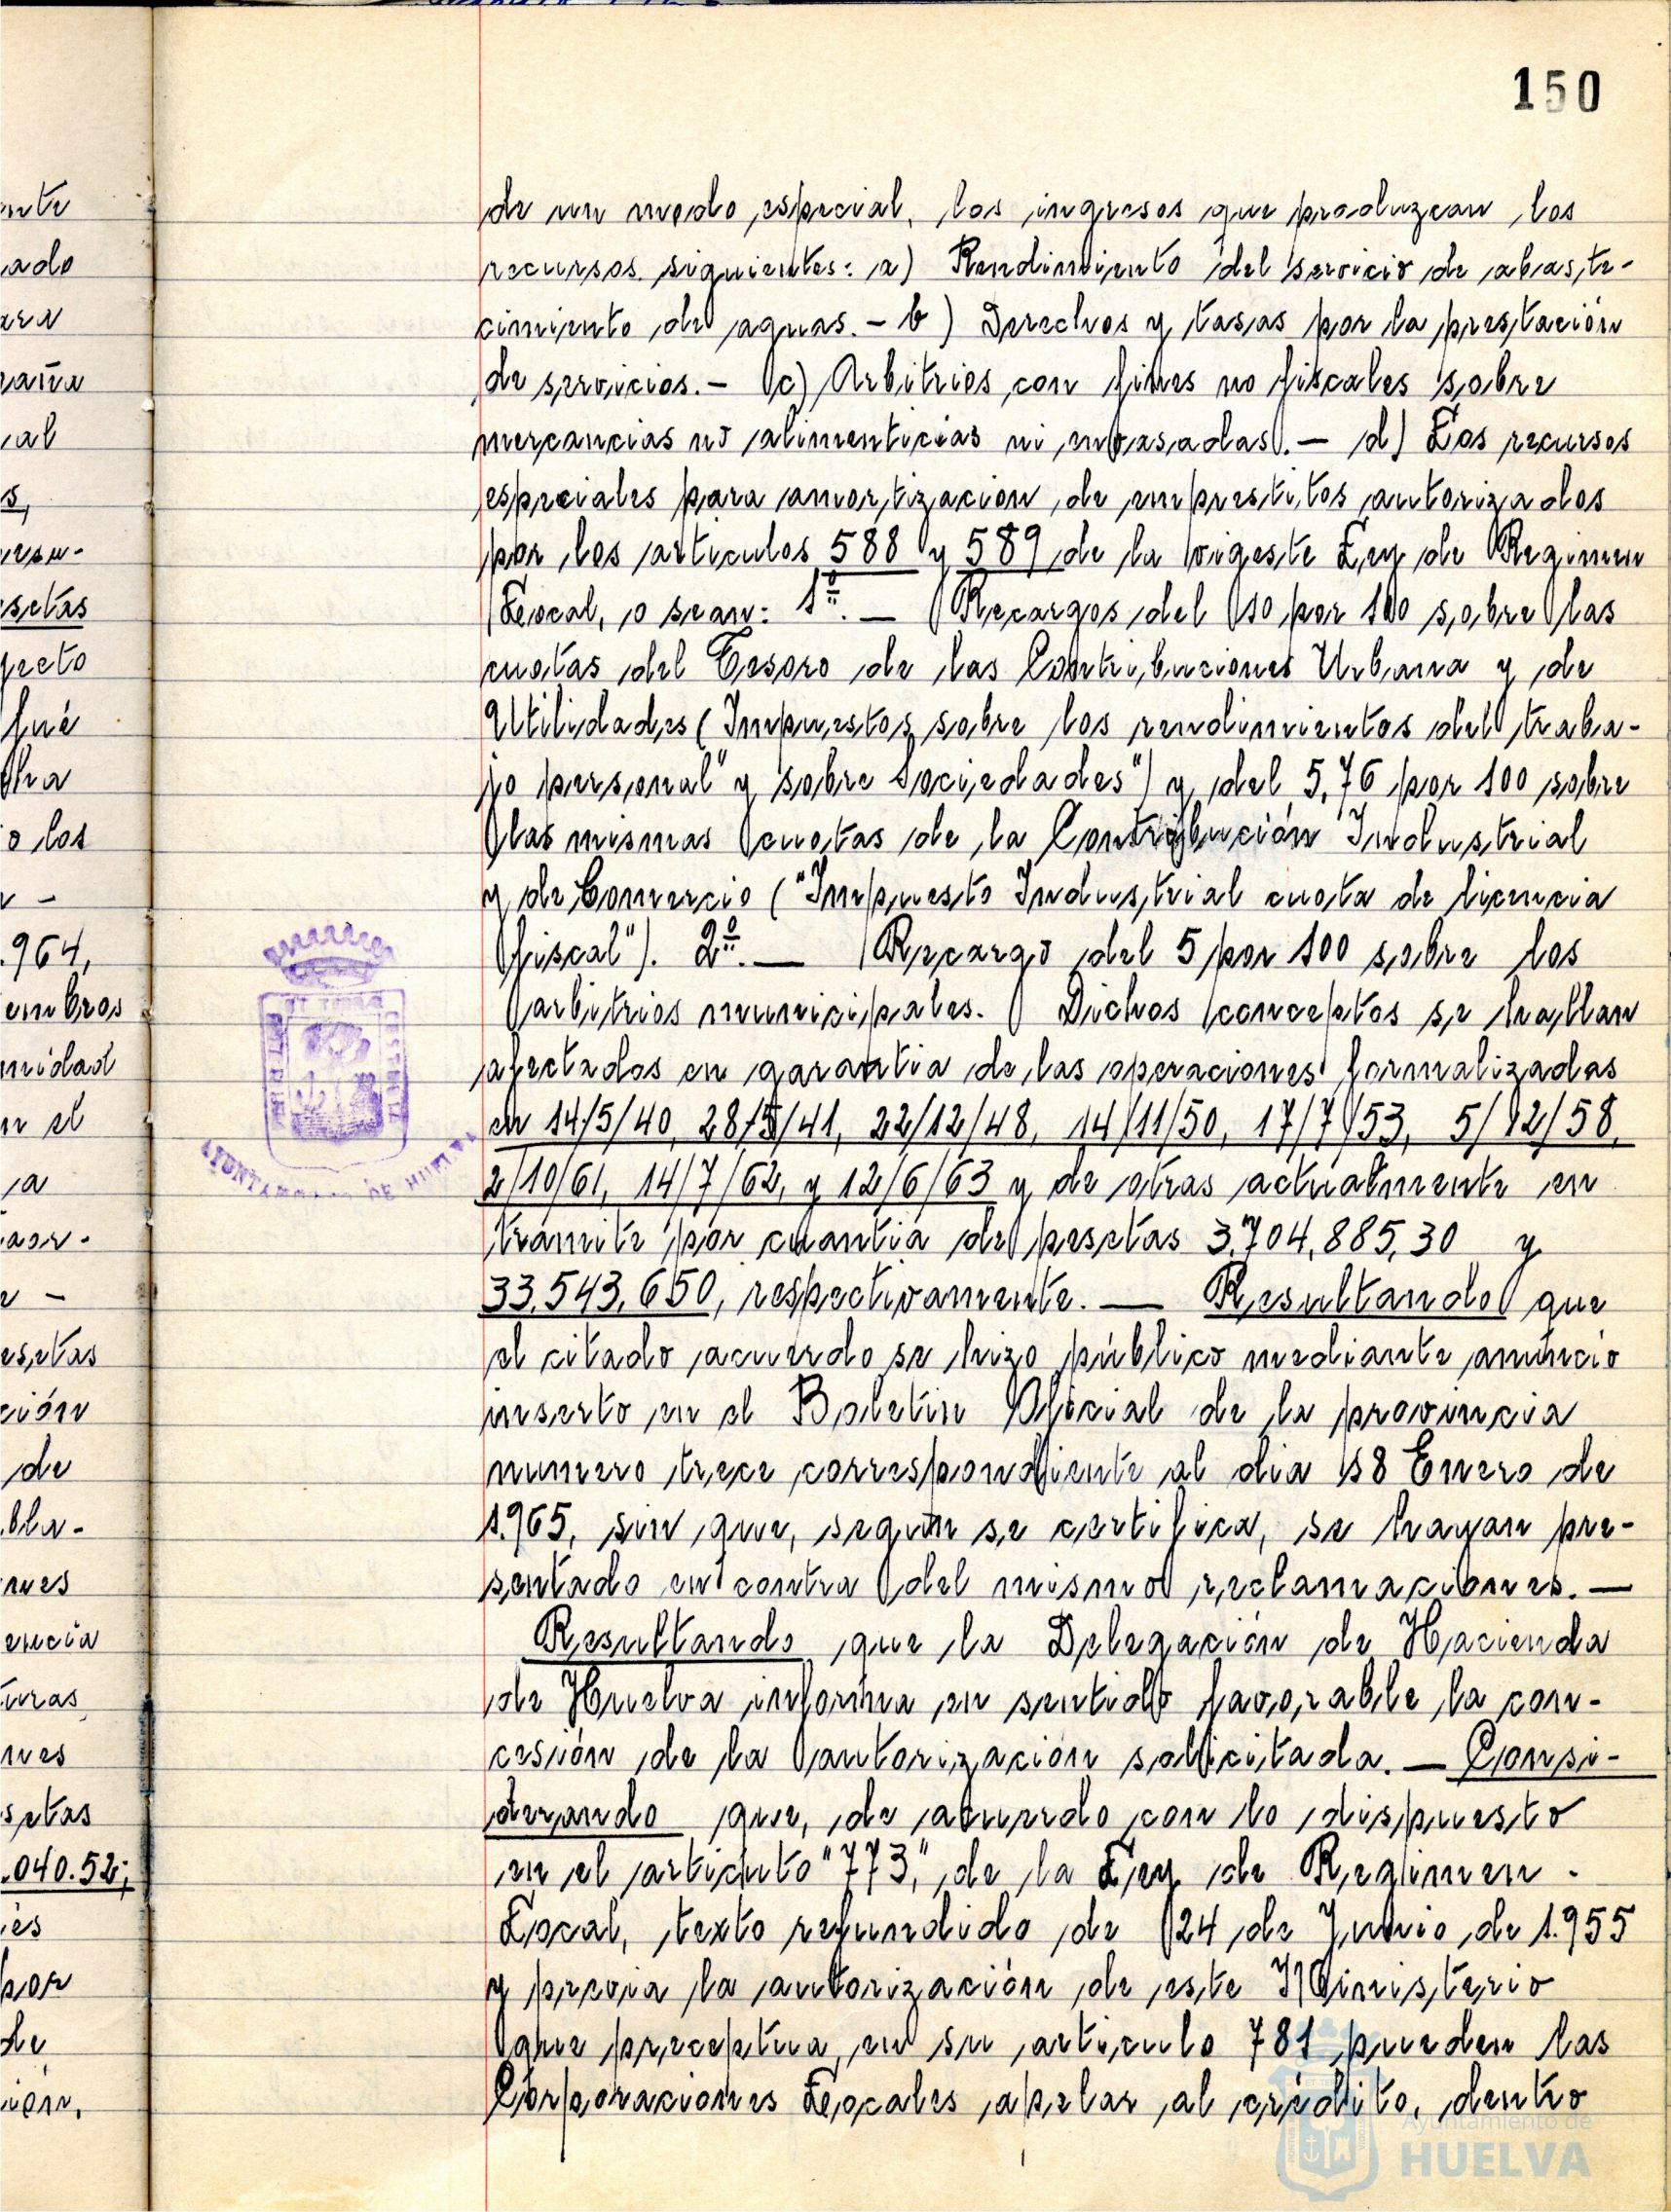 150
de un modo especial, los ingresos que produzcan los
recursos siguientes: a) Rendimiento del servicio de abaste-
cimiento de aguas.- b) Derechos y tasas por la prestación
de servicios.- c) Arbitrios con fines no fiscales sobre
mercancias no alimenticias ni envasadas.- d) Los recursos
especiales para amortización de emprestitos autorizados
por los articulos 588 y 589 de la vigente Ley de Regimen
Local, o sean: 1º.- Recargos del 10 por 100 sobre las
cuotas del Tesoro de las Contribuciones Urbana y de
Utilidades (Impuestos sobre los rendimientos del traba-
jo personal" y "sobre Sociedades") y del 5,76 por 100 sobre
las mismas cuotas de la Contribución Industrial
y de Comercio ("Impuesto Industrial cuota de licencia
fiscal"). 2º.- Recargo del 5 por 100 sobre los
arbitrios municipales. Dichos conceptos se hallan
afectados en garantia de las operaciones formalizadas
en 14/5/40, 28/5/41, 22/12/48, 14/11/50, 17/7/53, 5/12/58,
2/10/61, 14/7/62, y 12/6/63 y de otras actualmente en
tramite por cuantia de pesetas 3.704.885,30 y
33.543.650, respectivamente.- Resultando que
el citado acuerdo se hizo público mediante anuncio
inserto en el Boletin Oficial de la provincia
numero trece correspondiente al dia 18 Enero de
1.965, sin que, segun se certifica, se hayan pre-
sentado en contra del mismo reclamaciones.-
Resultando que la Delegación de Hacienda
de Huelva informa en sentido favorable la con-
cesión de la autorización solicitada.- Consi-
derando que, de acuerdo con lo dispuesto
en el articulo "773", de la Ley de Regimen.
Local, texto refundido de 24 de Junio de 1.955
y previa la autorización de este Ministerio
que preceptua en su articulo 781 pueden las
Corporaciones Locales apelar al crédito, dentro
AYUNTAMIENTO DE HUELVA
Ayuntamiento de
HUELVA